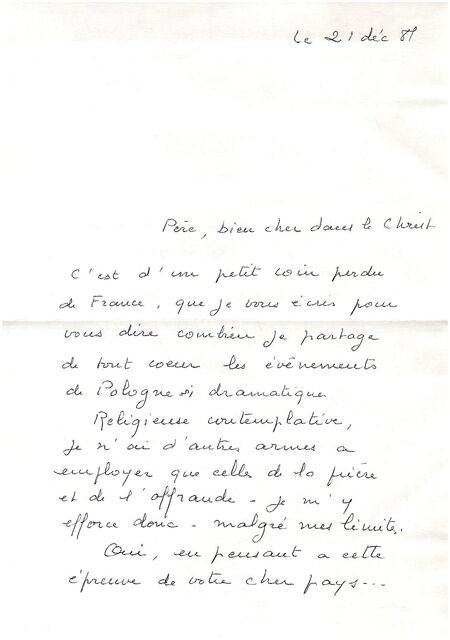 le 21 déc 81
Père, bien cher dans le Christ
C'est d'un petit coin perdu
de France, que je vous écris pour
vous dire combien je partage
de tout coeur les évènements
de Pologne si dramatiques
Religieuse contemplative,
je n'ai d'autres armes a
employer que celle de la prière
et de l'offrande - je m'y
efforce donc - malgré mes limites.
Oui, en pensant a cette
épreuve de votre cher pays...